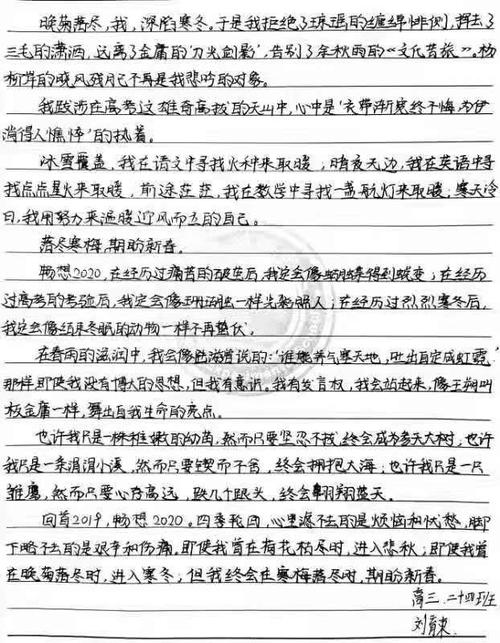 晚菊落尽,我,深陷寒冬。于是我拒绝了琼瑶的缠绵悱恻,挥去了
三毛的潇洒,远离了金庸的‘刀光剑影’,告别了余秋雨的《文化苦旅》。杨
柳岸的晓风残月已不再是我悲吟的对象。
我跋涉在高考这雄奇高拔的天山中,心中是‘衣带渐宽终不悔为伊
消得人憔悴’的执着。
冰雪覆盖,我在语文中寻找火种来取暖;暗夜无边,我在英语中寻
找点点星火来取暖,前途茫茫,我在数学中寻找一盏航灯来取暖;寒天冷
日,我用努力来温暖迎风而立的自己。
落尽寒梅,期盼新春。
畅想2020,在经历过痛苦的破茧后,我定会像蝴蝶得到蜕变;在经历
过高考的考验后,我定会像珊瑚一样光彩照人;在经历过烈烈寒冬后,
我定会像结束冬眠的动物一样不再蛰伏。
在春雨的滋润中,我会像说的:‘谁能养气塞天地,吐出自定成虹霓.’
那样即使我没有博大的思想,但我有意识,我有发言权,我会站起来,像王朔叫
板金庸一样,舞出自我生命的亮点。
也许我只是一株稚嫩的幼苗,然而只要坚忍不拔,终会成为参天大树;也许
我只是一条涓涓小溪,然而只要锲而不舍,终会拥抱大海;也许我只是一只
雏鹰,然而只要心存高远,跌几个跟头,终会翱翔蓝天。
回首2019,畅想2020。四季轮回,心里添不去的是烦恼和忧愁,脚
下略不去的是艰辛和伤痛。即使我曾在荷花枯尽时,进入悲秋;即使我曾
在晚菊落尽时,进入寒冬;但我终会在寒梅落尽时,期盼新春。
高三.二十四班
刘